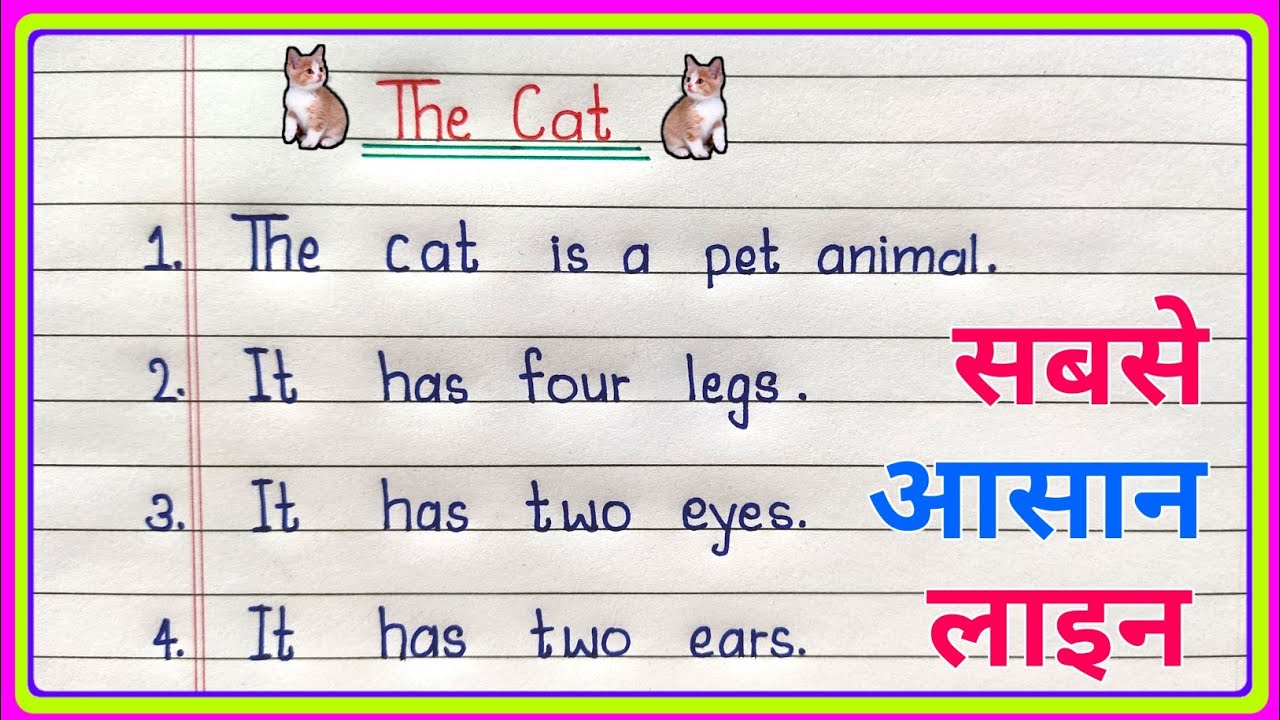 The Cat
1. The cat is a pet animal.
2. It has four legs.
सबसे
3. It has two eyes.
आसान
4. It has two ears.
लाइन